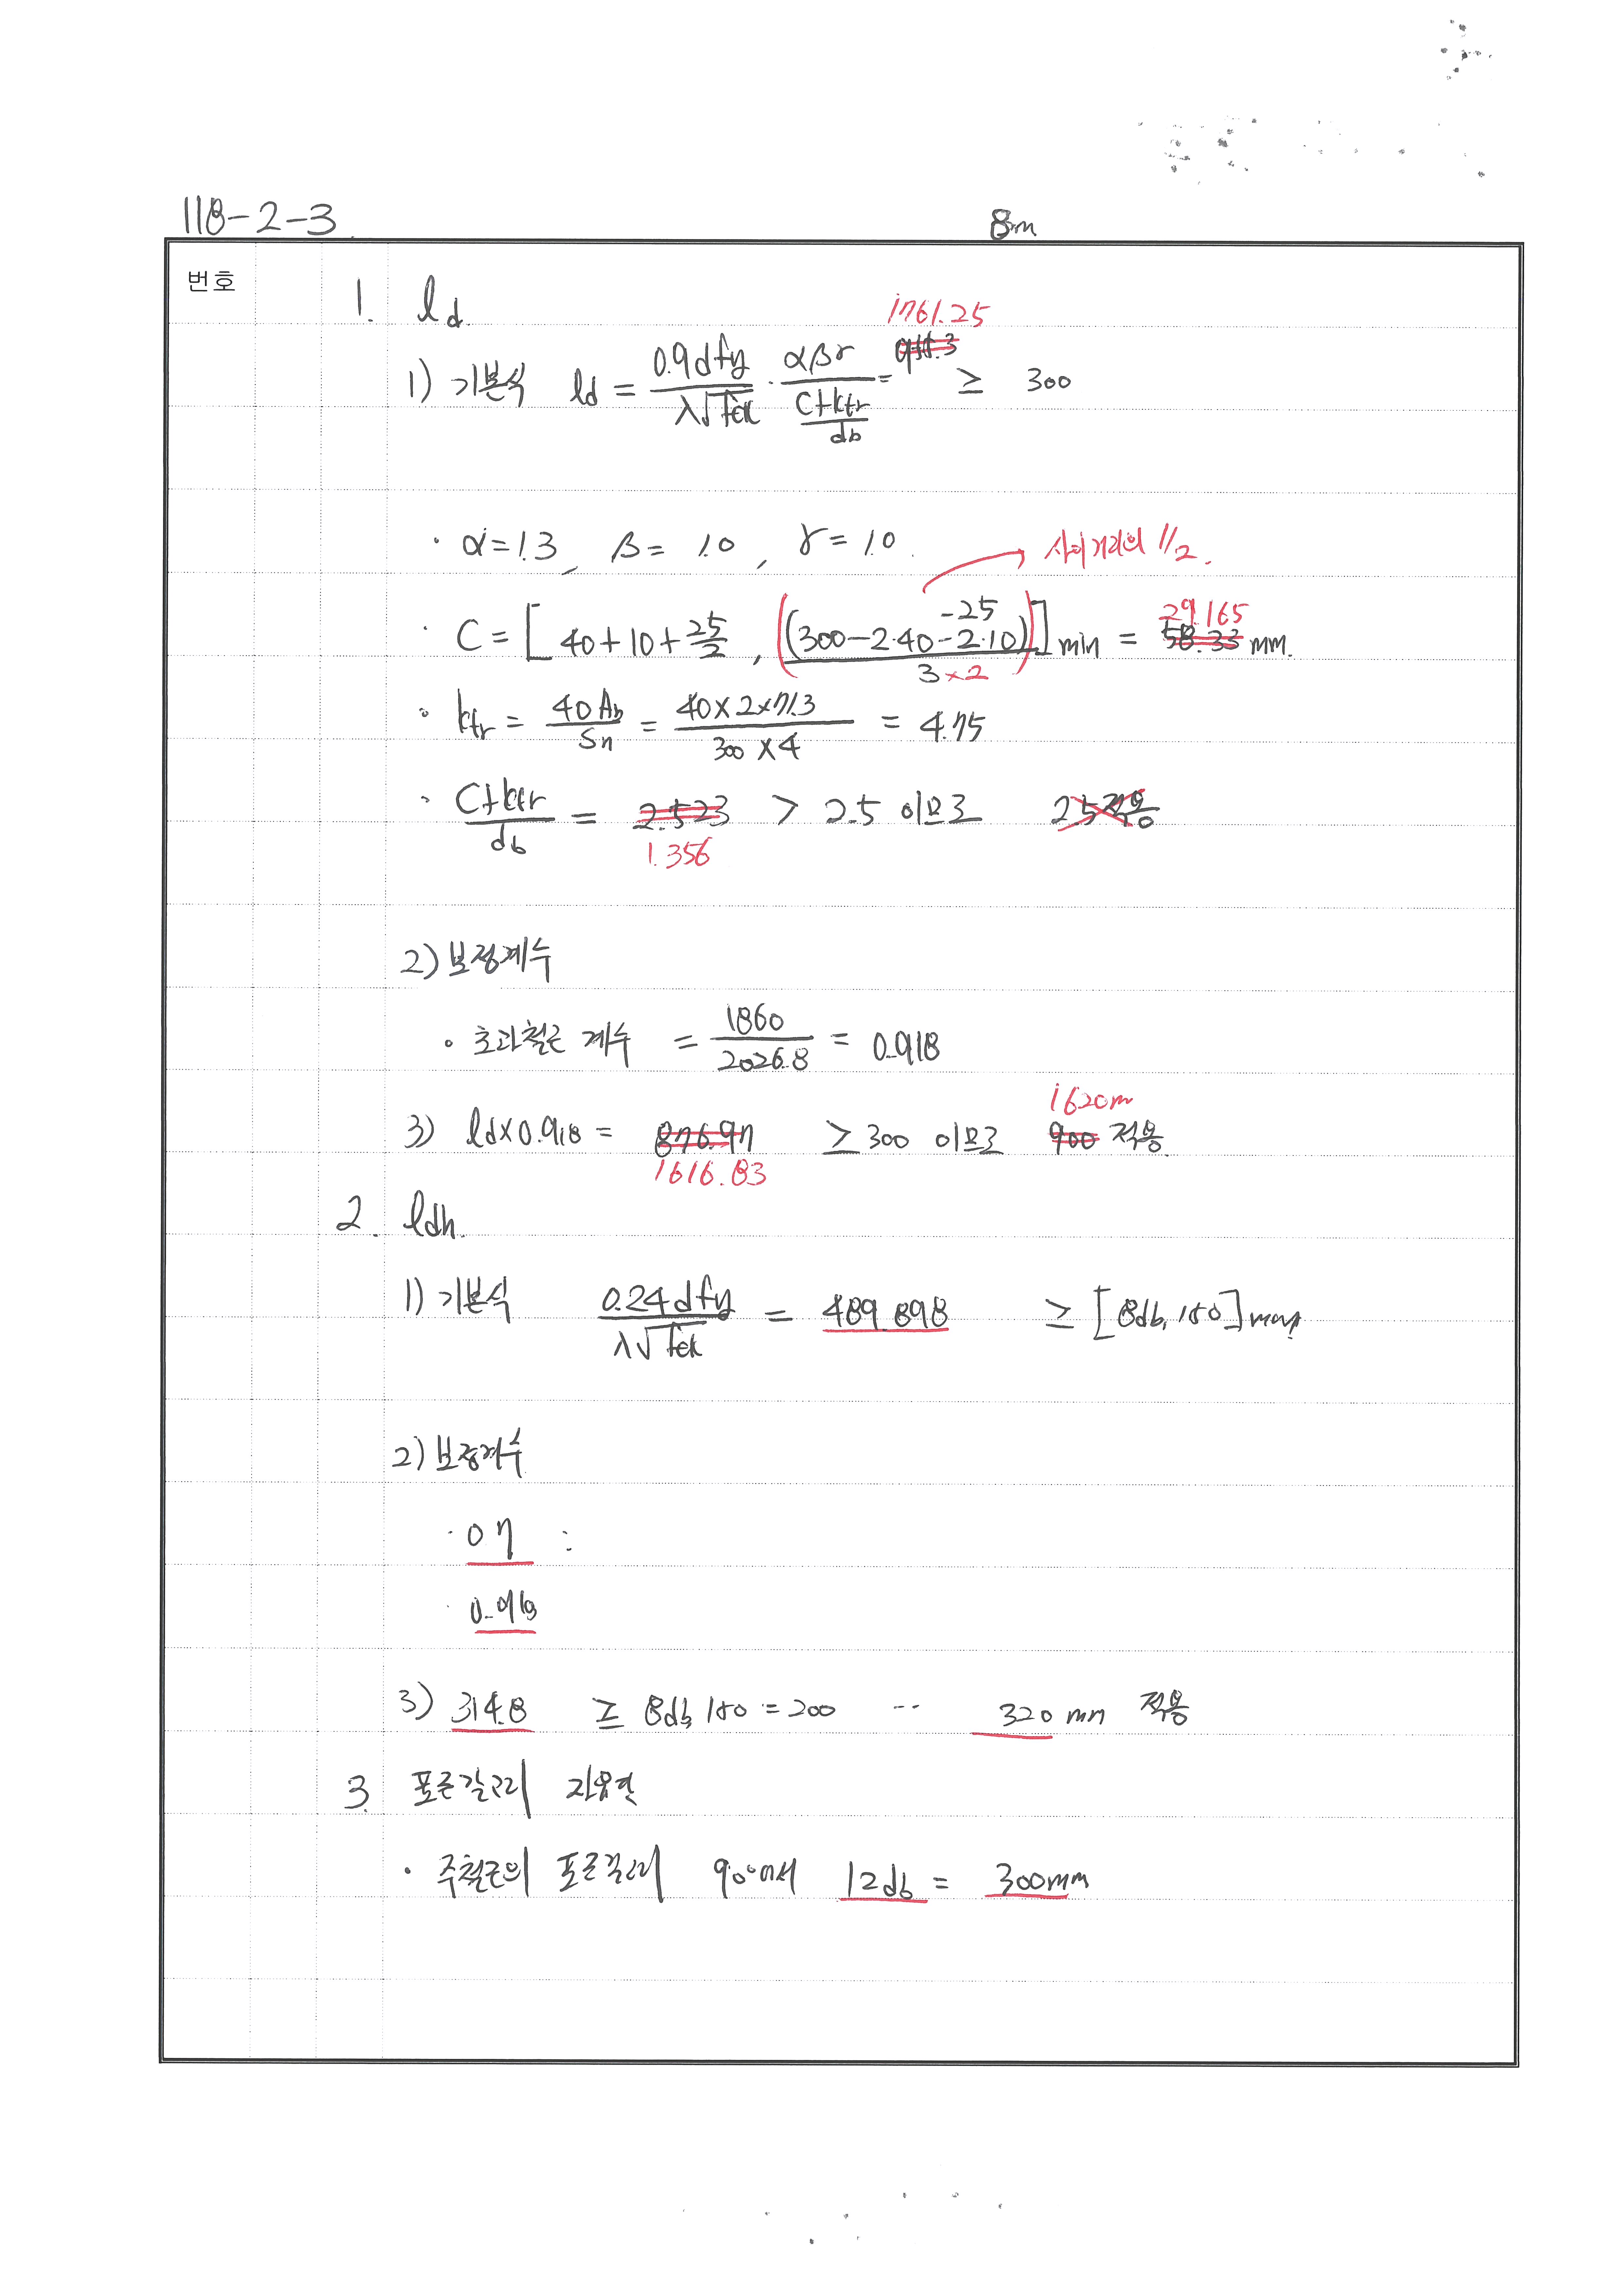 118-2-3
8m
번호
1. ld
1761.25
1) 기본식 ld = 0.9dfy / λ√fck · αβγ / ((C+ktr)/db) = ≥ 300
· α=1.3, β= 1.0, γ= 1.0
사이거리의 1/2.
· C = [ 40+10+25/2 , (300-2·40-2·10-25) / 3×2 ]min = 58.33 mm.
29.165
· ktr = 40Ab / Sn = 40×2×71.3 / 300×4 = 4.75
· C+ktr / db = 2.523 > 2.5 이므로 2.5 적용
1.356
2) 보정계수
· 초과철근 계수 = 1860 / 2026.8 = 0.918
1620m
3) ld×0.918 = 876.97 ≥300 이므로 900 적용
1616.83
2. ldh.
1) 기본식 0.24dfy / λ√fck = 489.898 ≥ [8db, 150]max
2) 보정계수
· 0.7 :
· 0.918
3) 314.8 ≥ 8db, 150 = 200 ·· 320 mm 적용
3. 표준갈고리 자유단
· 주철근의 표준갈고리 90°에서 12db = 300mm